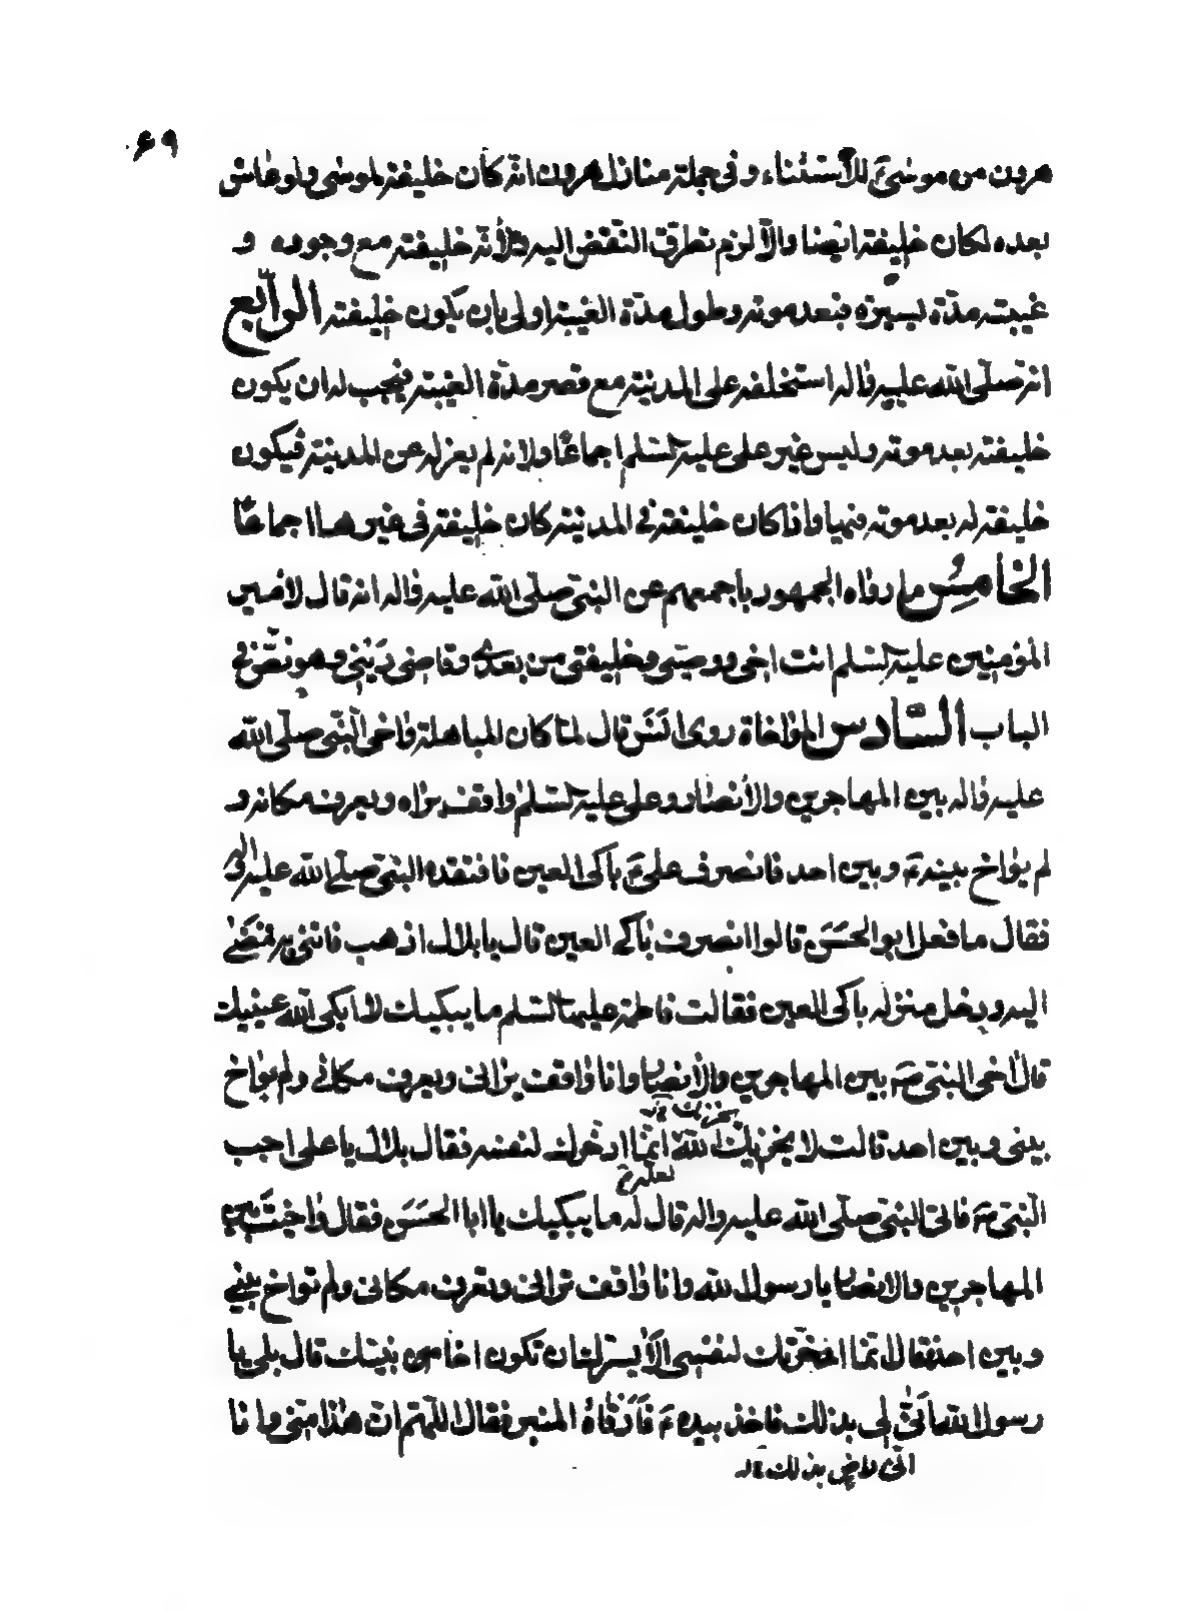 ۶۹
هرون من موسى ع للأستثناء و فى جملة منازل هرون انه كان خليفة لموسى ولو عاش
بعده لكان خليفة ايضا والّا لزم تطرق النقض اليه ولأنه خليفته مع وجوده و
غيبته مدّة يسيرة فبعد موته وطول مدّة الغيبة اولى بان يكون خليفته الرابع
انه صلّى الله عليه واله استخلفه على المدينة مع قصر مدّة الغيبة فيجب له ان يكون
خليفته بعد موته وليس غير على عليه السلم اجماعًا ولانه لم يعزله عن المدينة فيكون
خليفة له بعد موته فيها واذا كان خليفة فى المدينة كان خليفة فى غيرها اجماعًا
الخامس ما رواه الجمهور باجمعهم عن النبى صلّى الله عليه واله انه قال لامير
المؤمنين عليه السلم انت اخى ووصيّى وخليفتى من بعدى وقاضى دينى وهو نصّ فى
الباب السّادس المؤاخاة روى انس قال لمّا كان المباهلة واخى النّبى صلّى الله
عليه واله بين المهاجرين والأنصار وعلى عليه السّلم واقف يراه ويعرف مكانه و
لم يواخ بينه ع وبين احد فانصرف على ع باكى العين فافتقده النبى صلّى الله عليه واله
فقال ما فعل ابو الحسن قالوا انصرف باكى العين قال يا بلال اذهب فاتنى به فمضى
اليه ودخل منزله باكى العين فقالت فاطمة عليها السّلم ما يبكيك لا ابكى الله عينيك
قال اخى النبى ص بين المهاجرين والأنصار وانا واقف يرانى ويعرف مكانى ولم يواخ
بينى وبين احد قالت لا يحزنك الله انّما ادخرك لنفسه فقال بلال يا على اجب
لعله
النّبى ص فاتى النبى صلّى الله عليه واله قال له ما يبكيك يا ابا الحسن فقال واخيت بين
المهاجرين والانصار يا رسول الله وانا واقف ترانى وتعرف مكانى ولم تواخ بينى
وبين احد فقال انّما ادّخرتك لنفسى الّا يسرك ان تكون اخا نبيك قال بلى يا
رسول الله انّى لى بذلك فاخذ بيده ع فارقاه المنبر فقال اللّهم ان هذا منى وانا